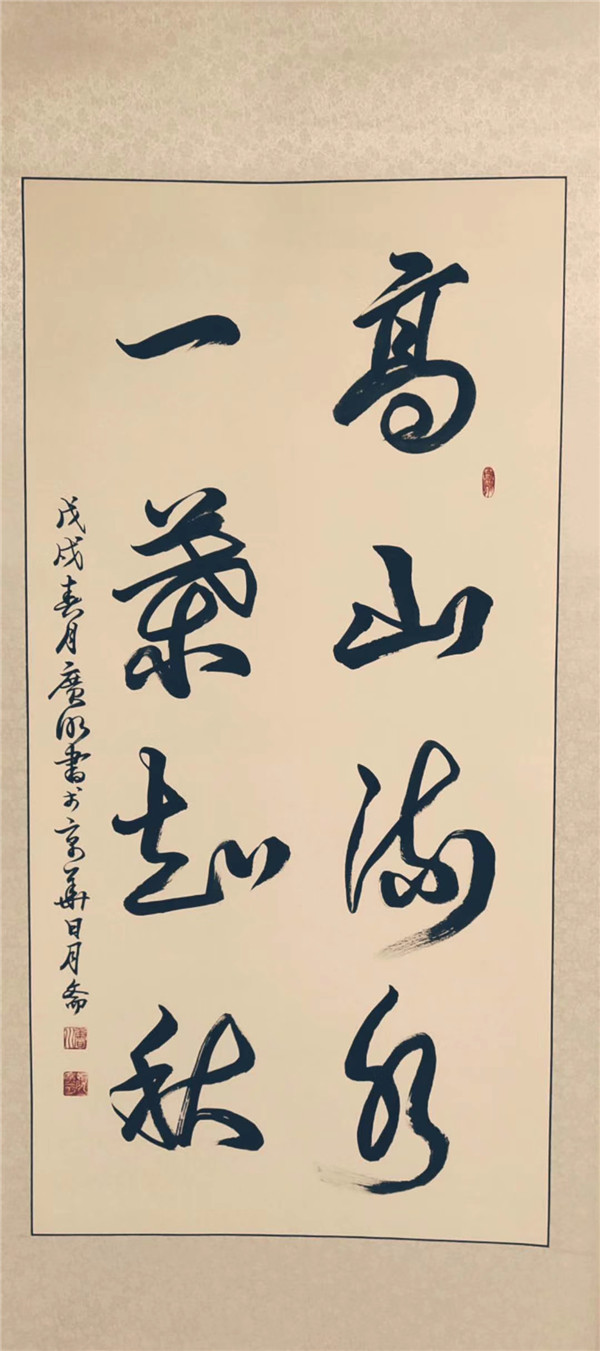 高山流水
一葉知秋
戊戌春月廣明書於京華日月齋